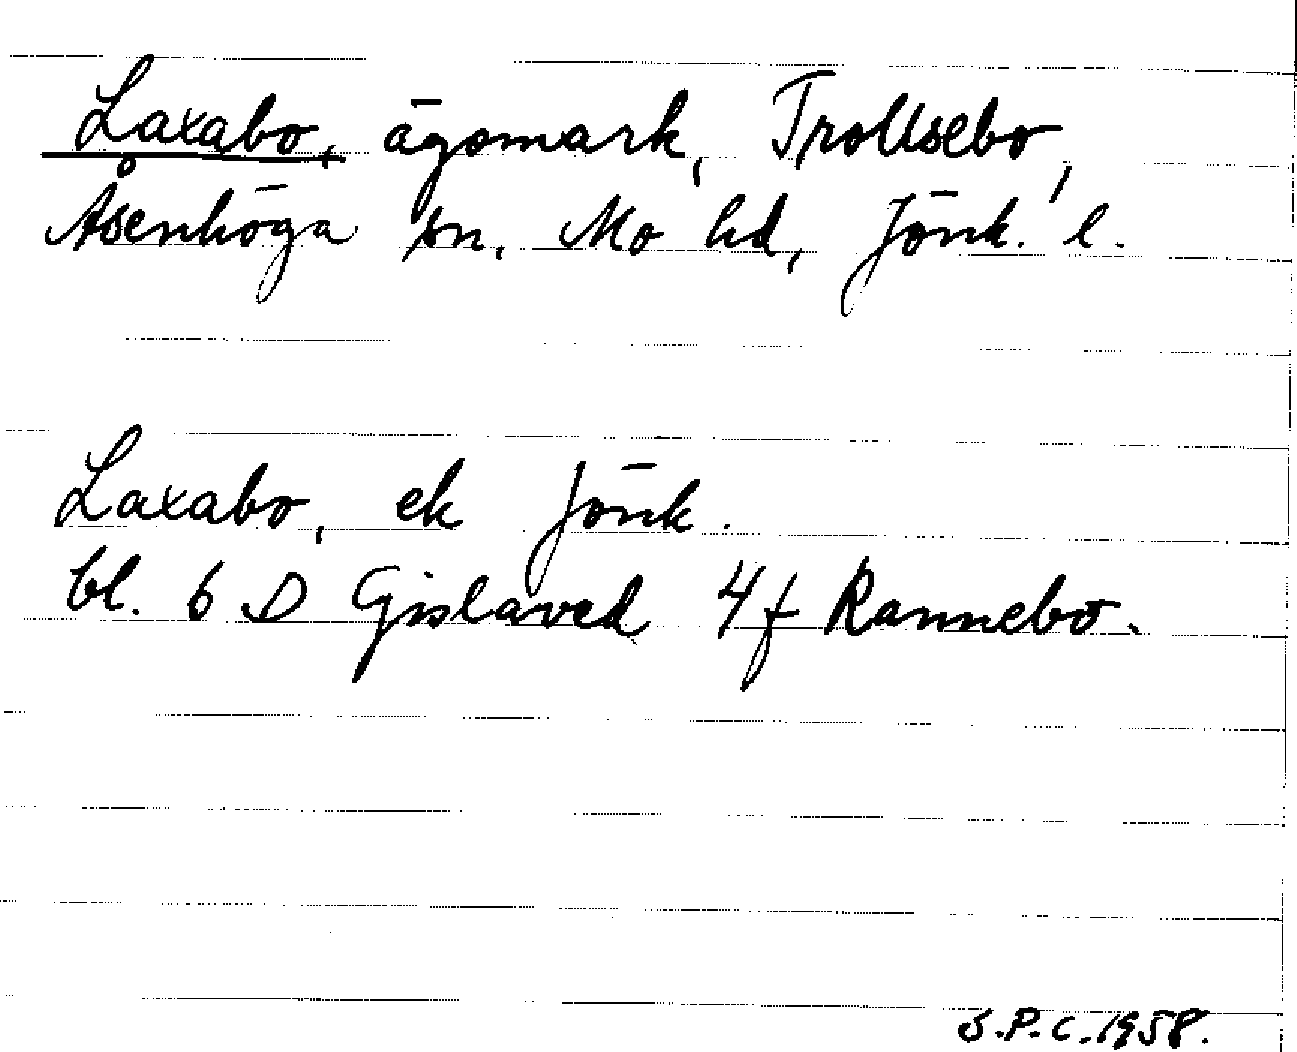 Laxabo, ägomark, Trollsebo,
Åsenhöga sn, Mo hd, Jönk. l.
Laxabo, ek Jönk.
bl. 6 D Gislaved 4f Rannebo.
S.P.C. 1958.